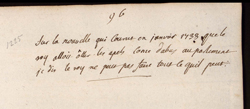 96
Sur la nouvelle qui courut en janvier 1733 que le
roy alloit ôter les apels comme d'abus au parlement
je dis le roy ne peut pas faire tout ce qu'il peut